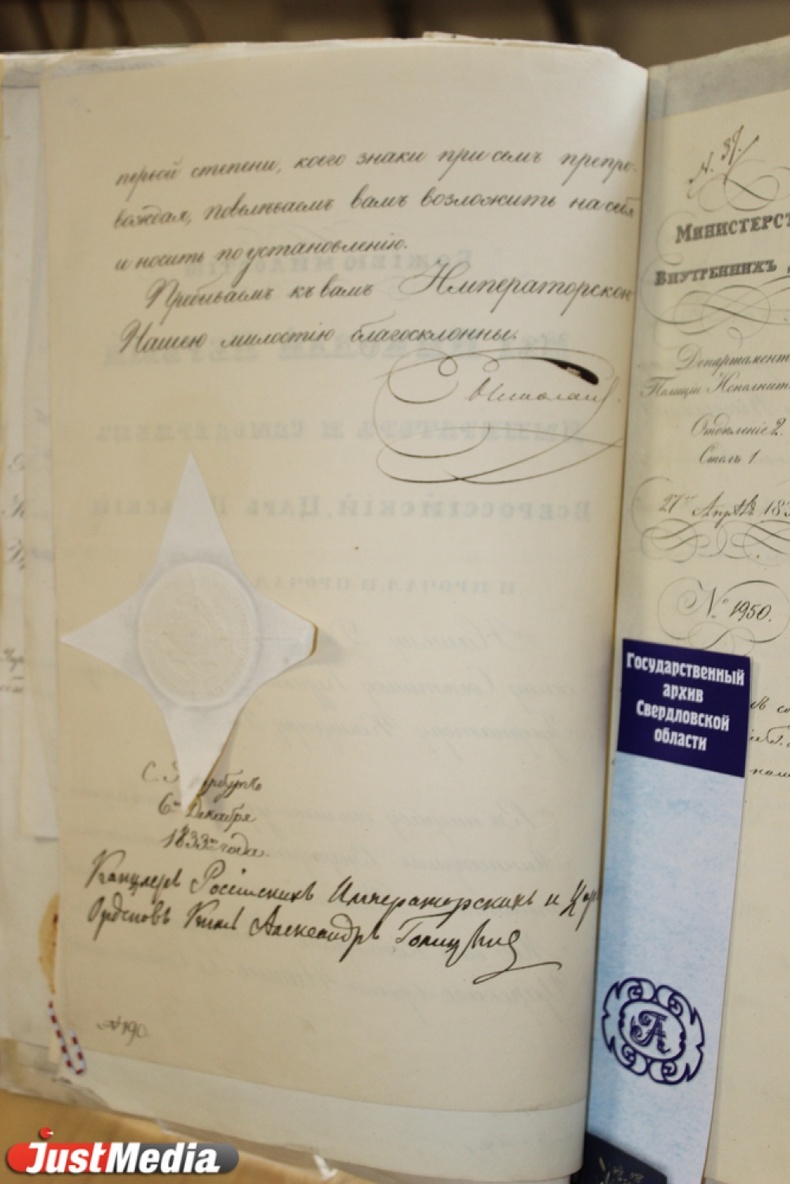 первой степени, коего знаки при семъ препро-
вождая, повелѣваемъ вамъ возложить на себя
и носить по установленію.
Пребываемъ къ вамъ Императорскою
Нашею милостію благосклонны.
Николай
С. П
6го Декабря
1833го года.
Канцлеръ Россійскихъ Императорскихъ и Цар
Орденовъ Князь Александръ Голицынъ
№ 190
Министерст
Внутреннихъ
Департамент
Полиціи Исполнит
Отдѣленіе 2.
Столъ 1
27го Апрѣля 183
№ 1950.
Государственный
архив
Свердловской
области
ГА
JustMedia